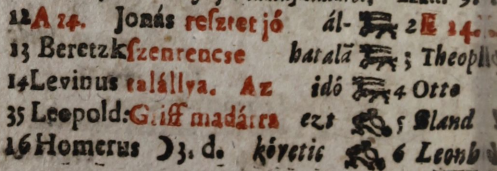 12 A 14. Jonás resztet jó ál- 2 E 14.
13 Beretzk szerencse hatalã 3 Theophi
14 Levinus talállya. Az idó 4 Otto
35 Leopold: Griff madárra ezt 5 Bland
16 Homerus ☽3. d. követic 6 Leonh